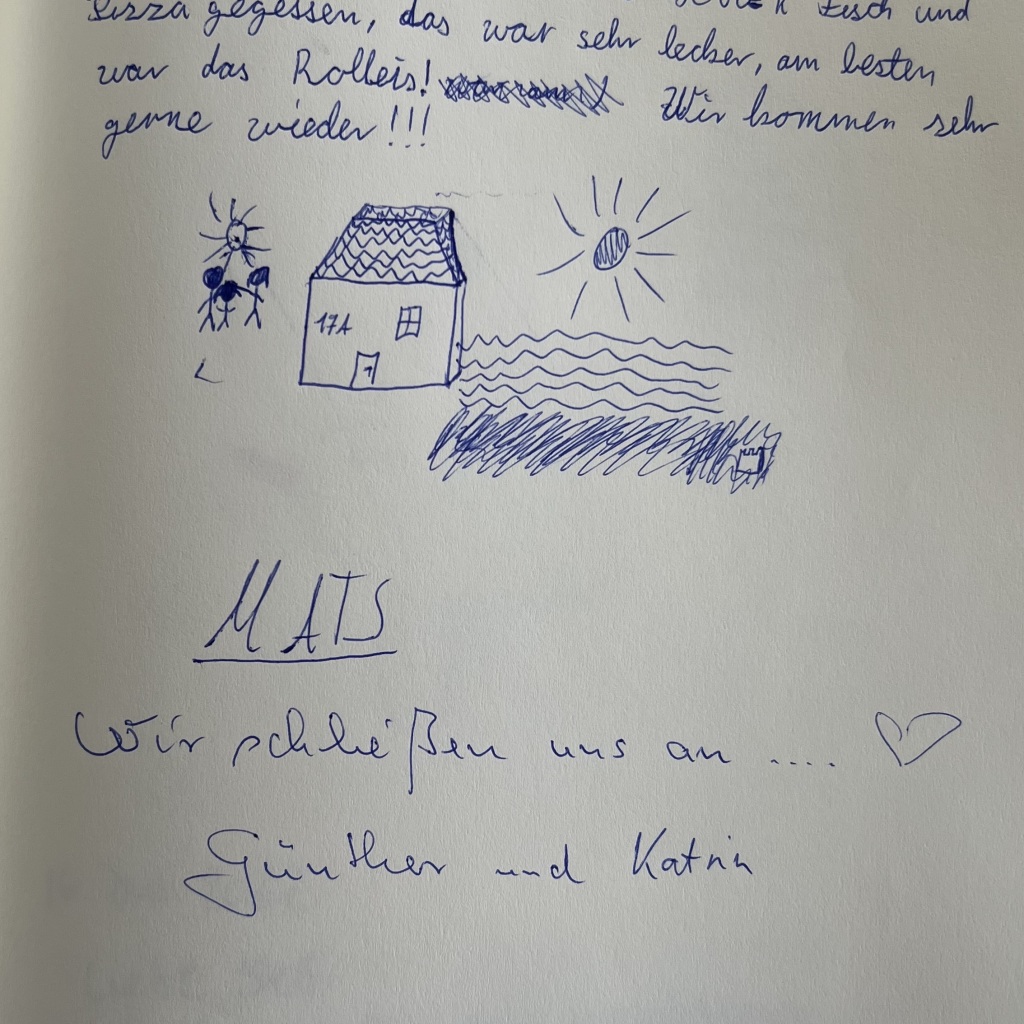 Pizza gegessen, das war sehr lecker, am besten
war das Rolleis! Wir kommen sehr
gerne wieder!!!
17A
MATS
Wir schließen uns an ....
Günther und Katrin